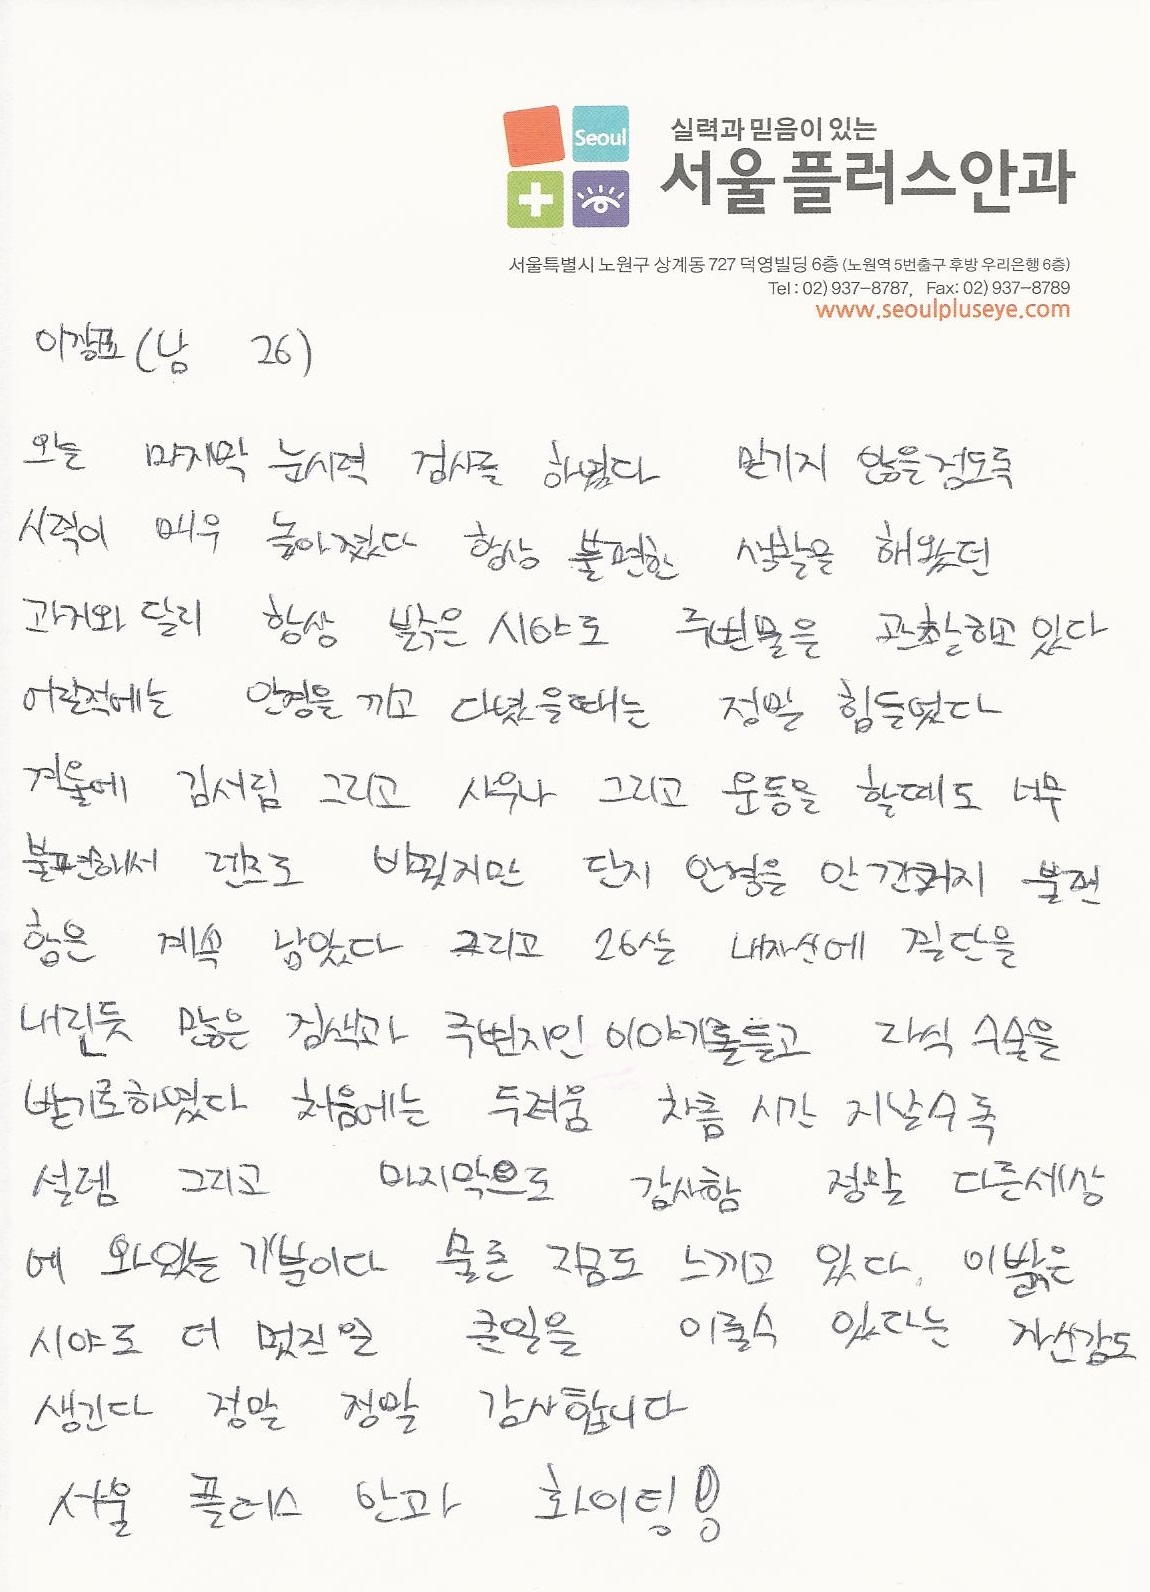 Seoul
실력과 믿음이 있는
서울플러스안과
서울특별시 노원구 상계동 727 덕영빌딩 6층 (노원역 5번출구 후방 우리은행 6층)
Tel : 02) 937-8787,  Fax: 02) 937-8789
www.seoulpluseye.com
(남 26)
오늘 마지막 눈시력 검사를 하였다 믿기지 않을정도록
시력이 매우 높아졌다 항상 불편한 생활을 해왔던
과거와 달리 항상 밝은 시야로 주변물을 관찰하고 있다
어릴적에는 안경을 끼고 다녔을때는 정말 힘들었다
겨울에 김서림 그리고 사우나 그리고 운동을 할때도 너무
불편해서 렌즈도 바꿨지만 단지 안경을 안 불편
함은 계속 남았다 그리고 26살 내자신에 결단을
내린듯 많은 검색과 주변지인 이야기를듣고 라식 수술을
받기로하였다 처음에는 두려움 차츰 시간 지날수록
설렘 그리고 마지막으로 감사함 정말 다른세상
에 와있는 기분이다 물론 지금도 느끼고 있다. 이밝은
시야로 더 멋진일 큰일을 이룰수 있다는 자신감도
생긴다 정말 정말 감사합니다
서울 플러스 안과 화이팅!